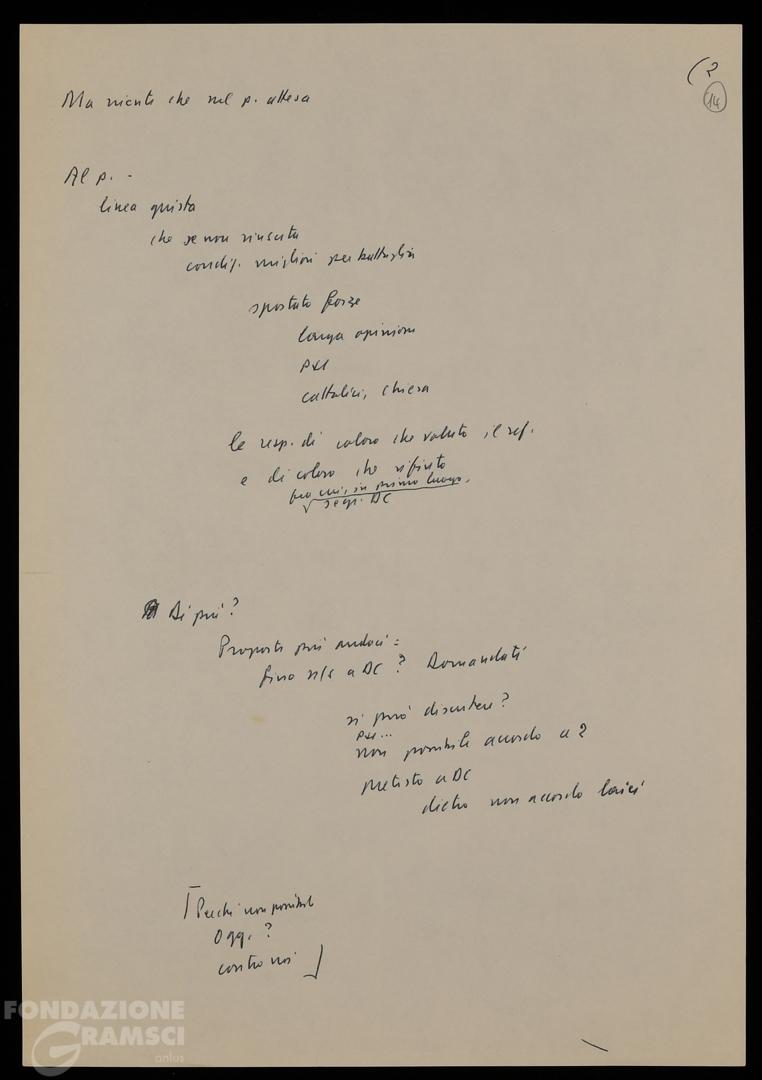 (2
14
Ma niente che nel p. attesa
Al p. -
linea giusta
che se non riuscita
condiz. migliori per battaglia
spostato forze
larga opinione
PSI
cattolici, chiesa
le resp. di coloro che voluto il ref.
e di coloro che rifiuto
fra cui, in primo luogo,
segr. DC
Di più?
Proposte più audaci =
fino a DC? Domandati
si può discutere?
PSI ...
non possibile accordo a 2
pretesto a DC
dietro non accordo laici
Perché non possibile
oggi?
contro noi
FONDAZIONE
GRAMSCI
onlus